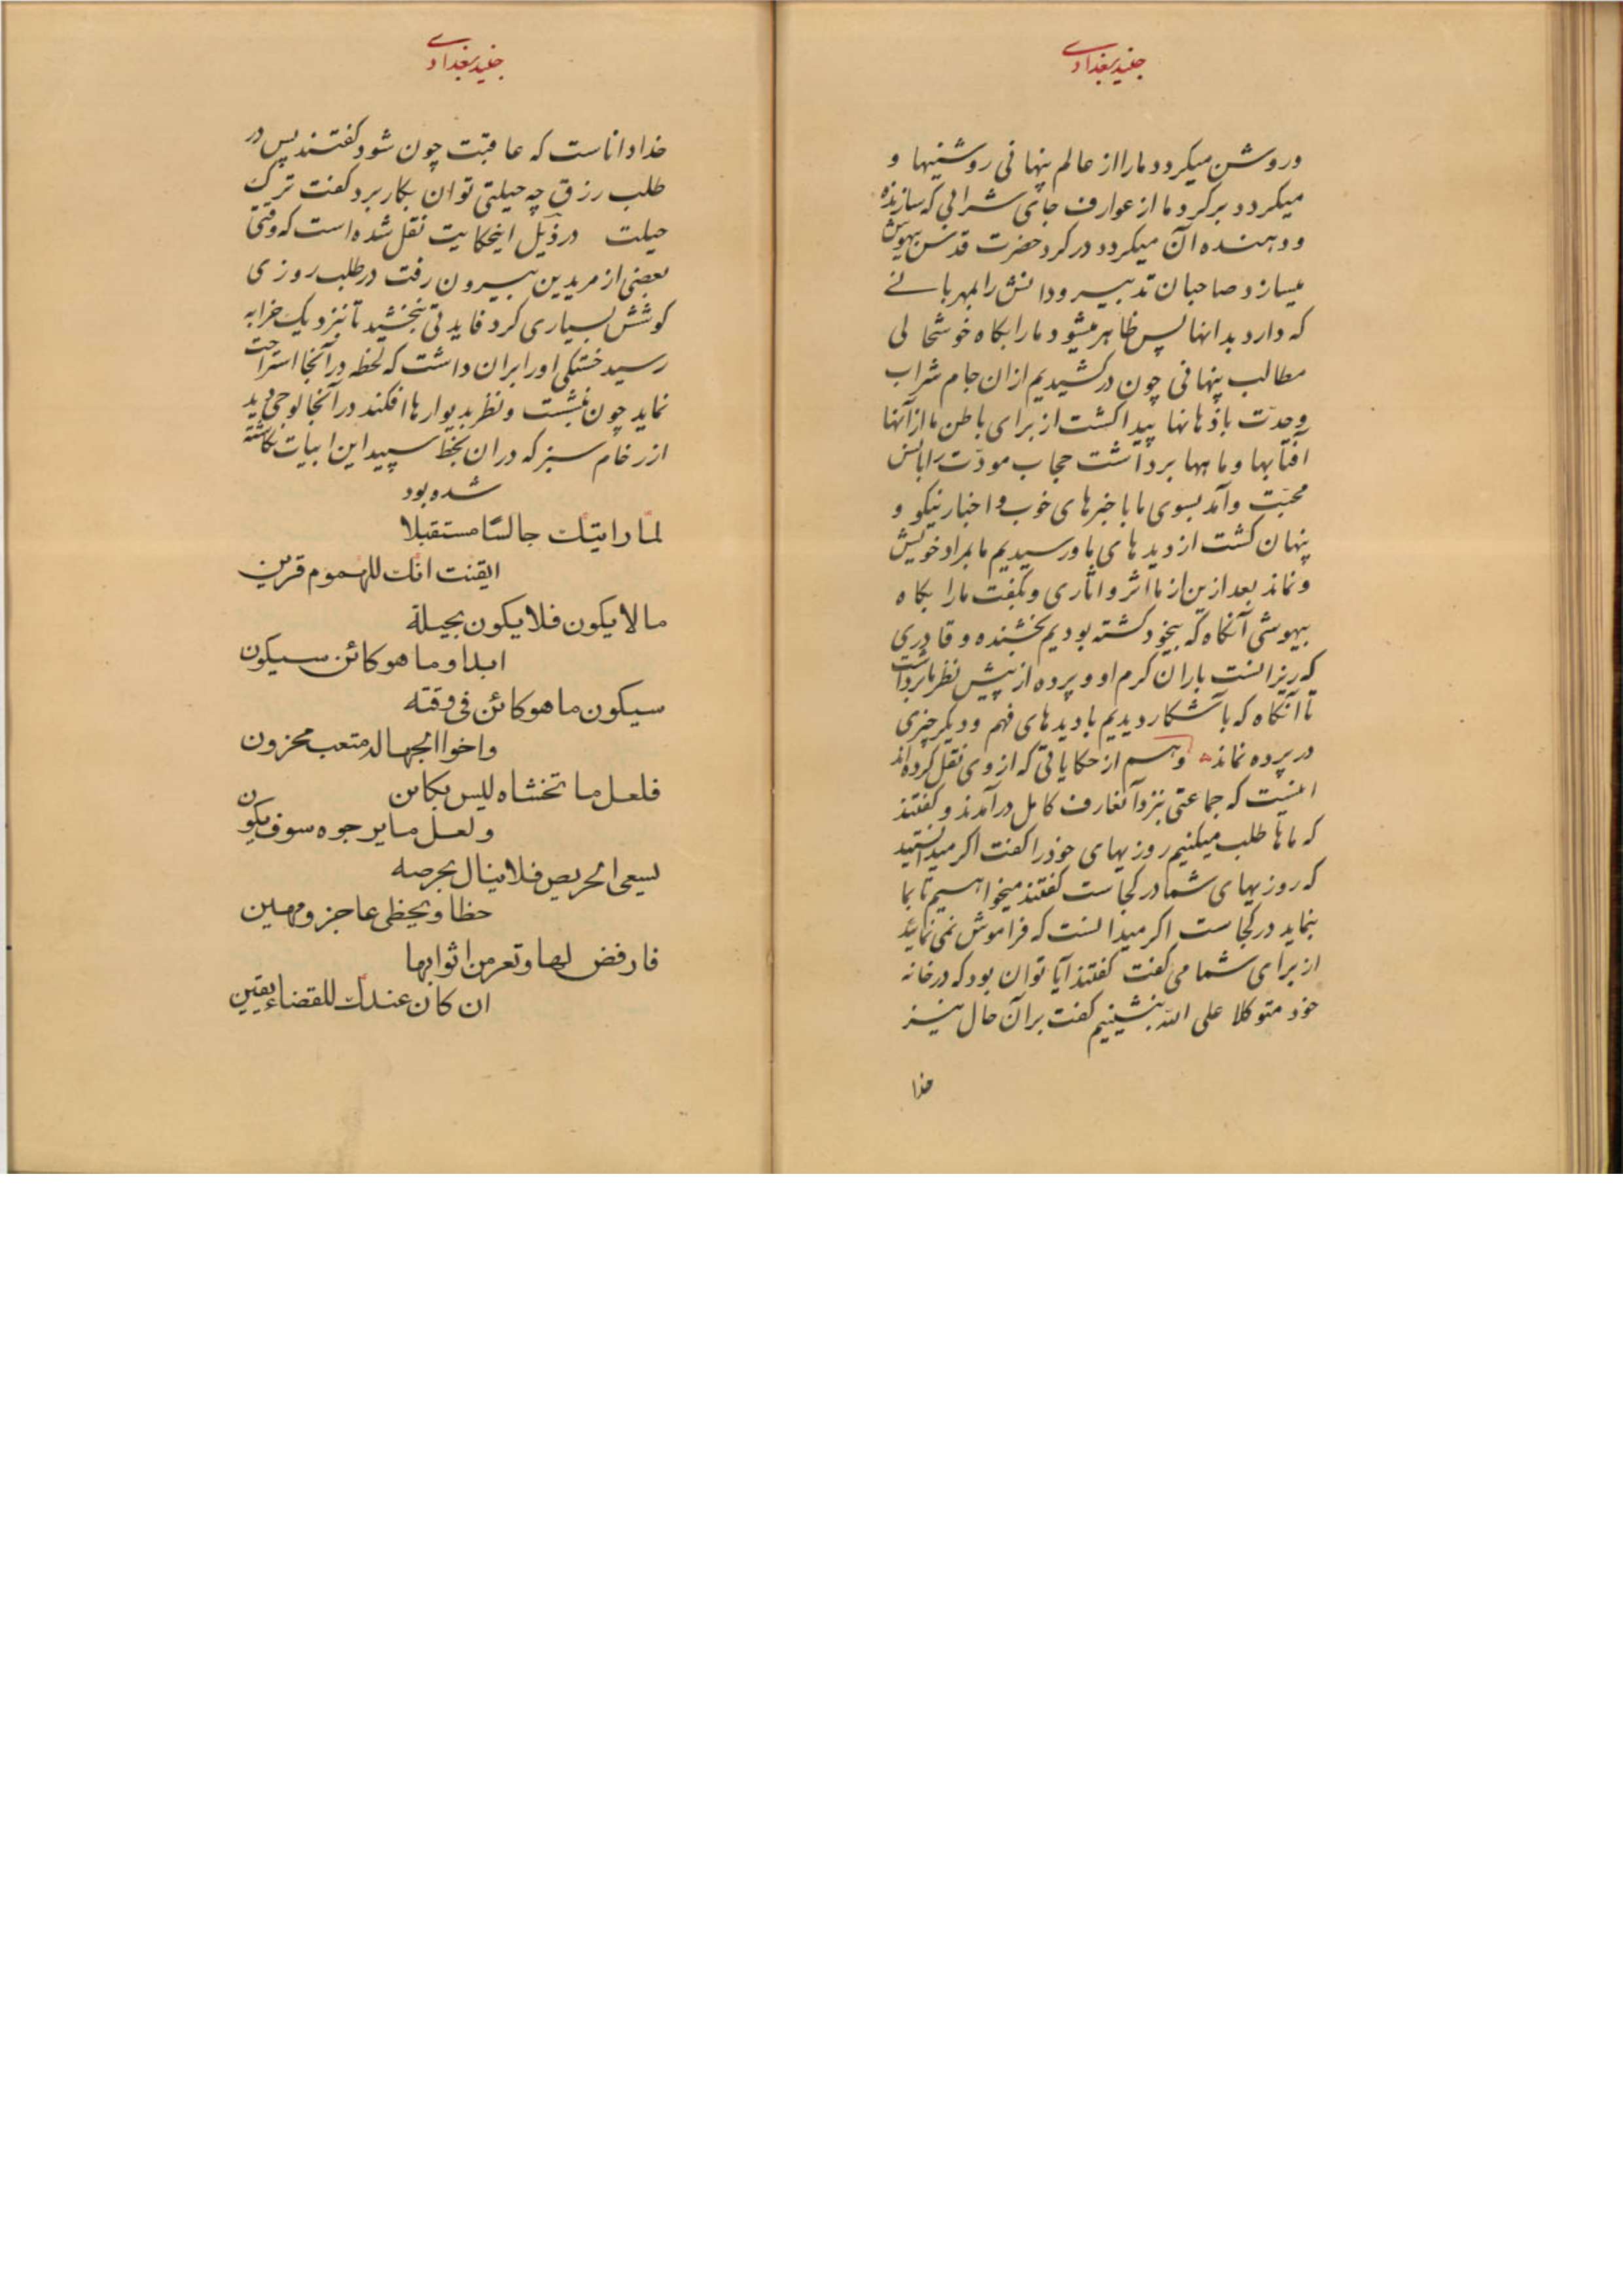 جنید بغدادی
و روشن میکردد ما را از عالم پنهانی روشنیها و
میکردد بر کرد ما از عوارف جای شرابی که سازنده
و دهنده آن میکردد در کرد حضرت قدس بیهوش
میسازد صاحبان تدبیر و دانش را بمهربانی
که دارد بدانها پس ظاهر میشود ما را بکاه خوشحالی
مطالب پنهانی چون درکشیدیم از ان جام شراب
وحدت باذهانها پیدا کشت از برای باطن ما از آنها
آفتابها و ماهها برداشت حجاب مودّت را بانس
محبّت و آمد بسوی ما با خبرهای خوب و اخبار نیکو و
پنهان کشت از دیدهای ما و رسیدیم ما بمراد خویش
و نماند بعد ازین از ما اثر و اثاری و بکفت ما را بکاه
بیهوشی آنکاه که بیخود کشته بودیم بخشنده و قادری
که ریزانست باران کرم او و پرده از پیش نظر ما برداشت
تا آنکاه که باشکار دیدیم با دیدهای فهم و دیکر چیزی
در پرده نماند و هم از حکایاتی که از وی نقل کرده‌اند
اینست که جماعتی بنزد آنعارف کامل درآمدند و کفتند
که ماها طلب میکنیم روزیهای خود را کفت اکر میدانستید
که روزیهای شما در کجاست کفتند میخواهیم تا بما
بنماید در کجاست اکر میدانست که فراموش نمی‌نماید
از برای شما می‌کفت کفتند آیا توان بود که در خانه
خود متوکلا علی الله بنشینیم کفت بر آن حال نیز
خدا
جنید بغدادی
خدا داناست که عاقبت چون شود کفتند پس در
طلب رزق چه حیلتی توان بکار برد کفت ترک
حیلت در ذیل اینحکایت نقل شده است که وقتی
بعضی از مریدین بیرون رفت در طلب روزی
کوشش بسیاری کرد فایدتی نبخشید تا بنزدیک خرابه
رسید خستکی او را بران داشت که لحظه در آنجا استراحت
نماید چون بنشست و نظر بدیوارها افکند در آنجا لوحی دید
از رخام سبز که در ان بخط سپید این ابیات نکاشته
شده بود
لمّا رایتک جالسًا مستقبلا
ایقنت انّک للهموم قرین
مالا یکون فلا یکون بحیلة
ابدا و ما هو کائن سیکون
سیکون ما هو کائن فی وقته
و اخوا الجهالد متعب محزون
فلعل ما تخشاه لیس بکائن
و لعل ما یرجوه سوف یکون
یسعی الحریص فلا ینال بحرصه
حظا و یحظی عاجز و مهین
فارفض لها و تعر من اثوابها
ان کان عندک للقضاء یقین